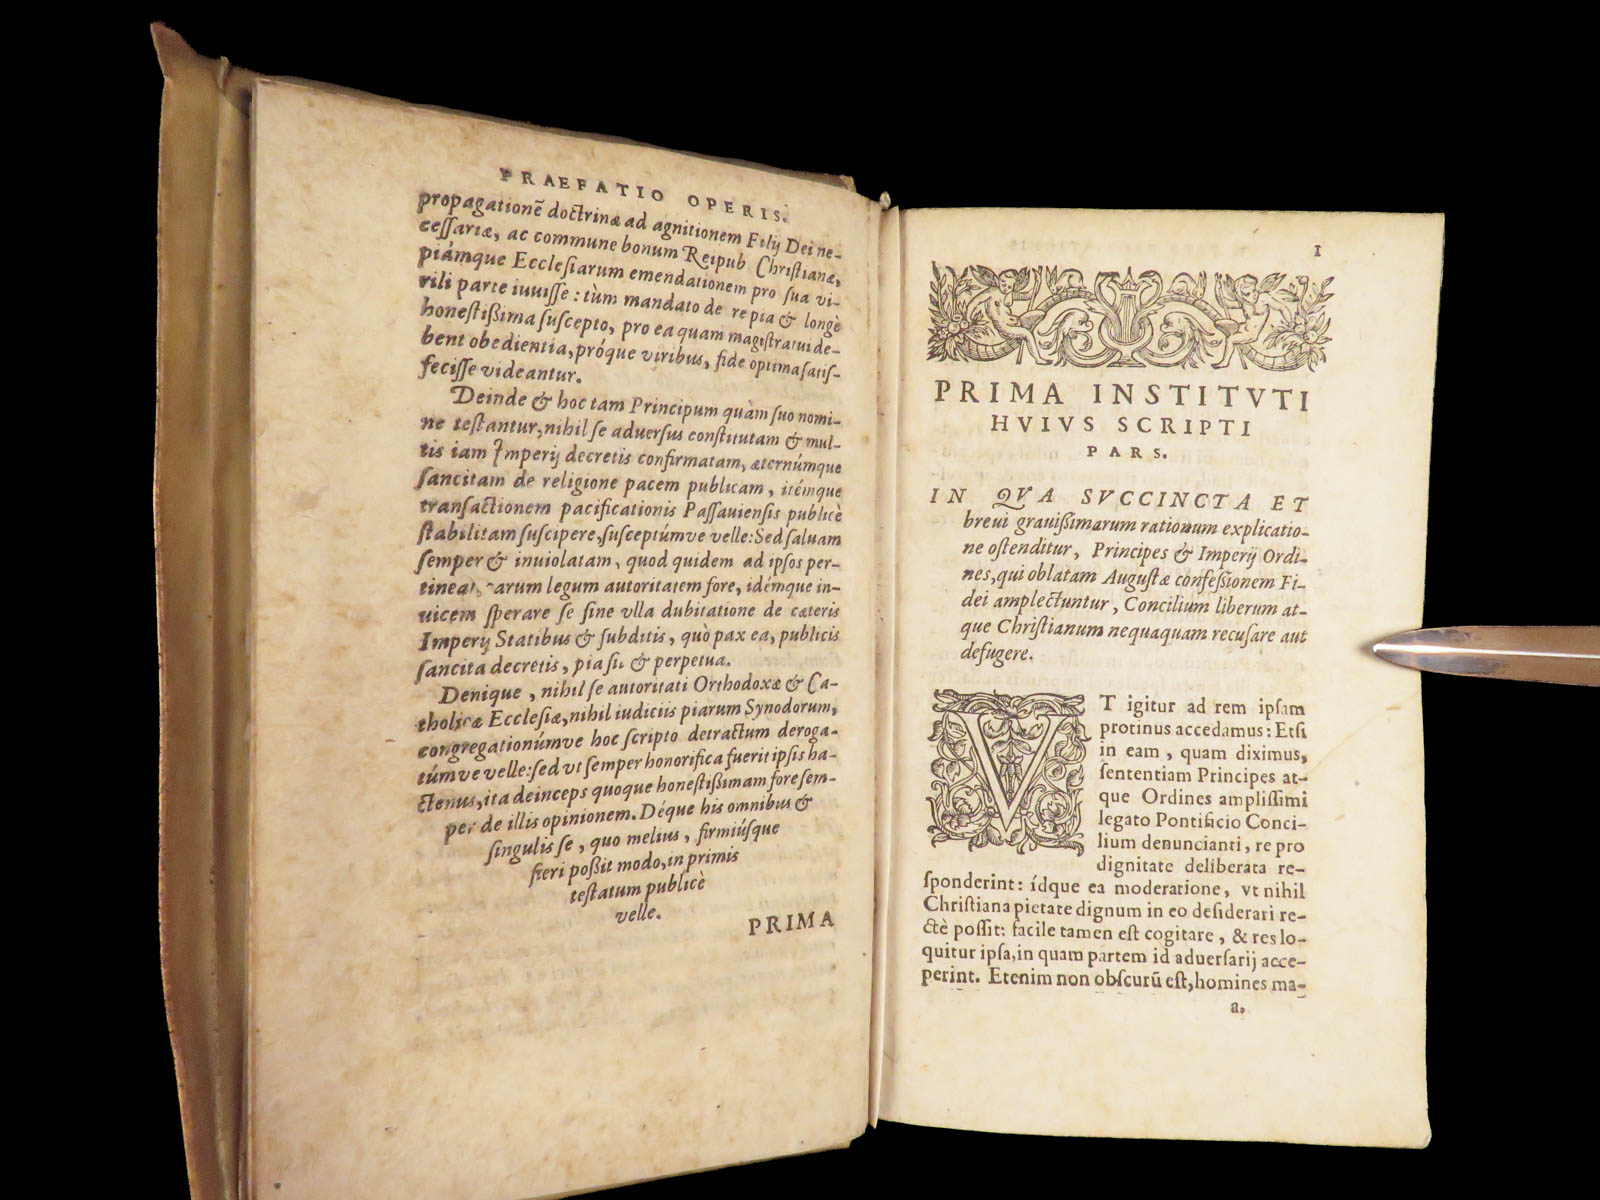 PRAEFATIO OPERIS.
propagationẽ doctrinæ ad agnitionem Filij Dei ne-
ceſſariæ, ac commune bonum Reipub Chriſtianæ,
piámque Eccleſiarum emendationem pro ſua vi-
rili parte iuuiſſe: tùm mandato de re pia & longè
honeſtißima ſuſcepto, pro ea quam magiſtratui de-
bent obedientia, próque viribus, fide optima ſatiſ-
feciſſe videantur.
Deinde & hoc tam Principum quàm ſuo nomi-
ne teſtantur, nihil ſe aduerſus conſtitutam & mul-
tis iam Imperij decretis confirmatam, æternúmque
ſancitam de religione pacem publicam, itémque
tranſactionem pacificationis Paſſauienſis publicè
ſtabilitam ſuſcipere, ſuſceptúmve velle: Sed ſaluam
ſemper & inuiolatam, quod quidem ad ipſos per-
tineat, arum legum autoritatem fore, idémque in-
uicem ſperare ſe ſine vlla dubitatione de cæteris
Imperij Statibus & ſubditis, quò pax ea, publicis
ſancita decretis, pia ſit & perpetua.
Denique, nihil ſe autoritati Orthodoxæ & Ca-
tholicæ Eccleſiæ, nihil iudiciis piarum Synodorum,
congregationúmve hoc ſcripto detractum deroga-
túmve velle: ſed vt ſemper honorifica fuerit ipſis ha-
ctenus, ita deinceps quoque honeſtißimam fore ſem-
per de illis opinionem. Déque his omnibus &
ſingulis ſe, quo melius, firmiúſque
fieri poßit modo, in primis
teſtatum publicè
velle.
PRIMA
1
PRIMA INSTITVTI
HVIVS SCRIPTI
PARS.
IN QVA SVCCINCTA ET
breui grauißimarum rationum explicatio-
ne oſtenditur, Principes & Imperij Ordi-
nes, qui oblatam Auguſtæ confeßionem Fi-
dei amplectuntur, Concilium liberum at-
que Chriſtianum nequaquam recuſare aut
defugere.
VT igitur ad rem ipſam
protinus accedamus: Etſi
in eam, quam diximus,
ſententiam Principes at-
que Ordines ampliſſimi
legato Pontificio Conci-
lium denuncianti, re pro
dignitate deliberata re-
ſponderint: ídque ea moderatione, vt nihil
Chriſtiana pietate dignum in eo deſiderari re-
ctè poſſit: facile tamen eſt cogitare, & res lo-
quitur ipſa, in quam partem id aduerſarij acce-
perint. Etenim non obſcurũ eſt, homines ma-
a.